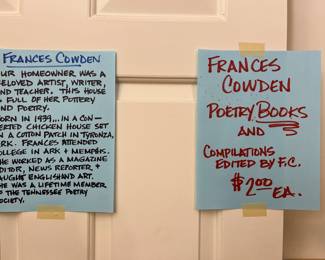 FRANCES COWDEN
OUR HOMEOWNER WAS A
BELOVED ARTIST, WRITER,
AND TEACHER. THIS HOUSE
IS FULL OF HER POTTERY
AND POETRY.
BORN IN 1939... IN A CON-
VERTED CHICKEN HOUSE SET
IN A COTTON PATCH IN TYRONZA,
ARK. FRANCES ATTENDED
COLLEGE IN ARK + MEMPHIS.
SHE WORKED AS A MAGAZINE
EDITOR, NEWS REPORTER, +
TAUGHT ENGLISH AND ART.
SHE WAS A LIFETIME MEMBER
OF THE TENNESSEE POETRY
SOCIETY.
FRANCES
COWDEN
POETRY BOOKS
AND
COMPILATIONS
EDITED BY F.C.
$2.00 EA.